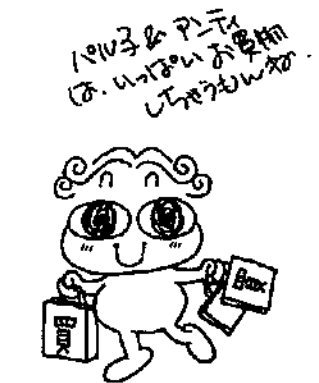 パル子&アンティ
は、いっぱいお買物
しちゃうもんね.
買
Box